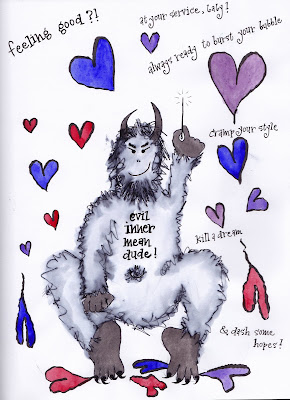 feeling good?!
at your service, Caty!
always ready to burst your bubble
cramp your style
evil
inner
mean
dude!
kill a dream
& dash some
hopes!